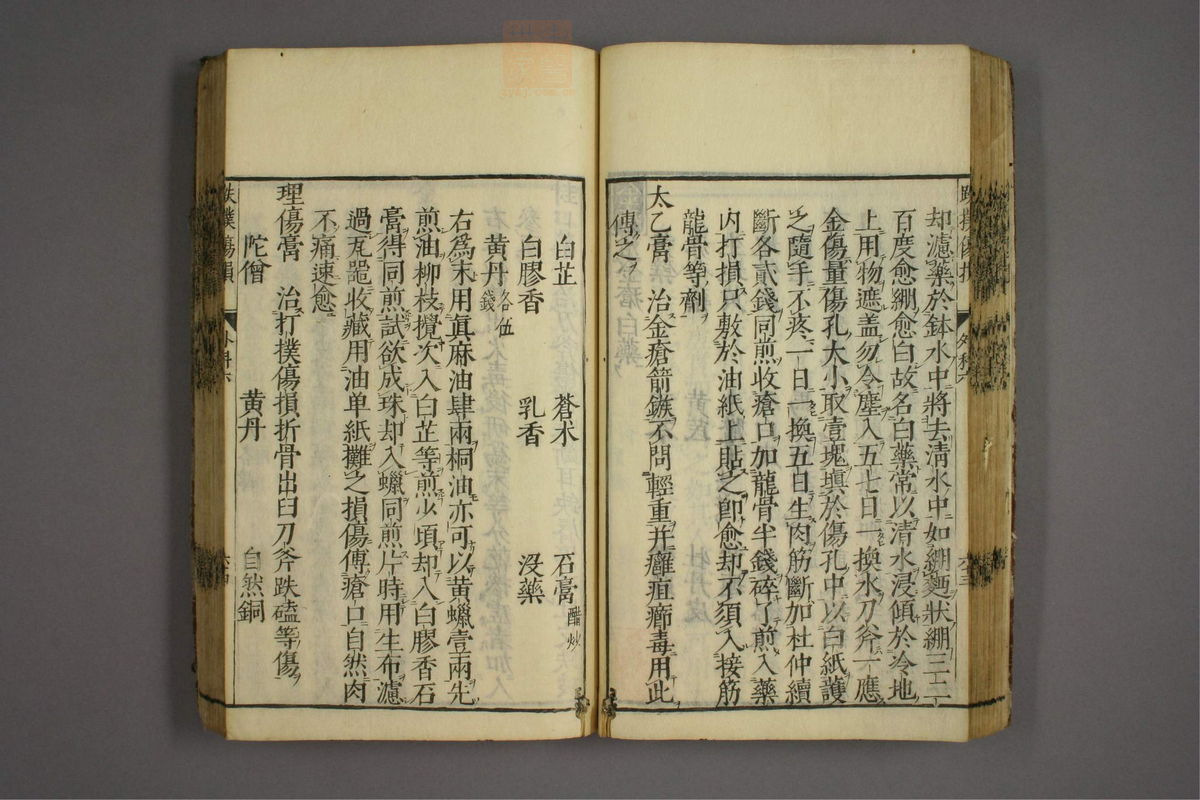 却濾藥於鉢水中將去清水中如綳麪狀綳三二
百度愈綳愈白故名白藥常以清水浸傾於冷地
上用物遮盖勿令塵入五七日一換水刀斧一應
金傷量傷孔大小取壹塊塡於傷孔中以白紙護
之隨手不疼一日一換五日生肉筋斷加杜仲續
斷各貳錢同煎收瘡口加龍骨半錢碎了煎入藥
内打損只敷於油紙上貼之卽愈却不須入接筋
龍骨等劑
太乙膏 治金瘡箭鏃不問輕重并癰疽癤毒用此
傅之
白芷 蒼朮 石膏醋炒
白膠香 乳香 没藥
黄丹各伍錢
右爲末用眞麻油肆兩桐油亦可以黄蠟壹兩先
煎油柳枝攪次入白芷等煎少頃却入白膠香石
膏得同煎試欲成珠却入蠟同煎片時用生布濾
過瓦噐收藏用油单紙攤之損傷傅瘡口自然肉
不痛速愈
理傷膏 治打撲傷損折骨出臼刀斧跌磕等傷
陀僧 黄丹 自然銅